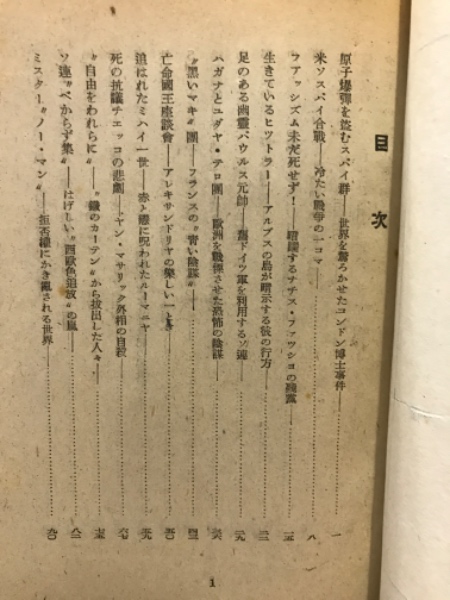 目次
原子爆彈を盜むスパイ群——世界を驚ろかせたコンドン博士事件——……一
米ソスパイ合戰——冷たい戰爭の一コマ——……八
ファッシズム未だ死せず!——暗躍するナチス・ファッショの殘黨——
生きているヒットラー——アルプスの鳥が暗示する彼の行方——
足のある幽靈パウルス元帥——舊ドイツ軍を利用するソ連——
ハガナとユダヤ・テロ團——歐洲を戰慄させた恐怖の陰謀——
“黑いマキ”團——フランスの“靑い陰謀”——
亡命國王座談會——アレキサンドリヤの樂しい一とき——
追はれたミハイ一世——赤い星に呪われたルーマニヤ——
死の抗議チェッコの悲劇——ヤン・マサリック外相の自殺——
“自由をわれらに”——“鐵のカーテン”から拔出した人々——
ソ連“べからず集”——はげしい“西歐色追放”の嵐——
ミスター“ノー・マン”——拒否權にかき亂される世界——
1